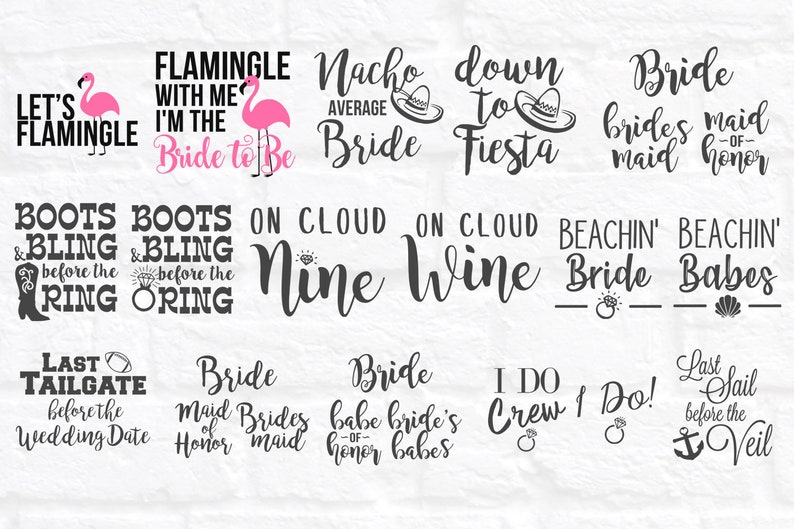 LET'S
FLAMINGLE
FLAMINGLE
WITH ME
I'M THE
Bride to Be
Nacho
AVERAGE
Bride
down
to
Fiesta
Bride
brides
maid
maid
OF
honor
BOOTS
& BLING
before the
RING
BOOTS
& BLING
before the
RING
ON CLOUD
Nine
ON CLOUD
Wine
BEACHIN'
Bride
BEACHIN'
Babes
LAST
TAILGATE
before the
Wedding Date
Bride
Maid
of
Honor
Brides
maid
Bride
babe
OF
honor
bride's
babes
I DO
Crew
I Do!
Last
Sail
before the
Veil